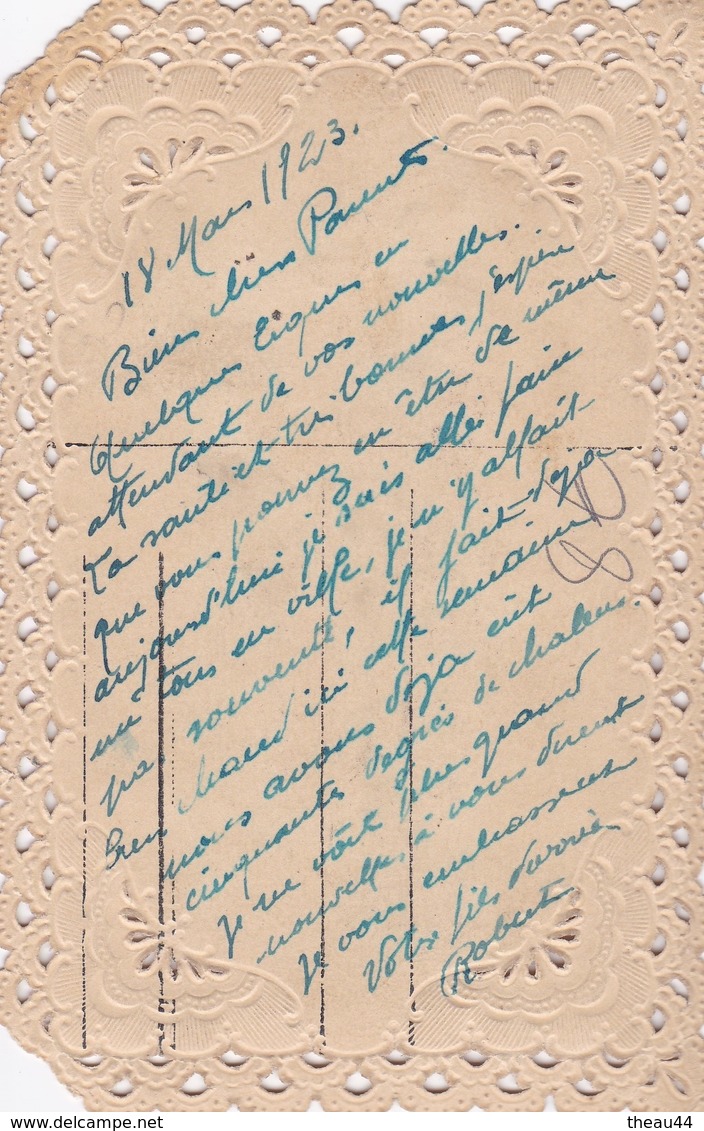 18 Mars 1923.
Biens chers Parents.
Quelques lignes en
attendant de vos nouvelles.
La santé est très bonnes, j'espère
que vous pouvez en être de même
aujourd'hui je suis allé faire
un tour en ville, je n'y allait
pas souvente, il fait deja
bien chaud ici cette semaine
nous avons deja eut
cinquante degrés de chaleur.
je ne voit plus quand
nouvelles à vous
je vous embrassent
Votre fils
Robert
theau44